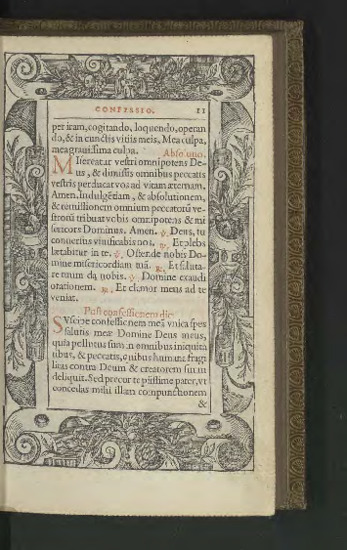 CONFESSIO. 11
per iram, cogitando, loquendo, operan
do, & in cunctis vitiis meis. Mea culpa,
mea grauissima culpa. Absolutio.
MIsereatur vestri omnipotens De-
us, & dimissis omnibus peccatis
vestris perducat vos ad vitam æternam.
Amen. Indulgētiam, & absolutionem,
& remissionem omnium peccatorū ve-
strorū tribuat vobis omnipotens & mi
sericors Dominus. Amen. ℣. Deus, tu
conuersus viuificabis nos. ℟. Et plebs
lætabitur in te. ℣. Ostende nobis Do-
mine misericordiam tuā. ℟. Et saluta-
re tuum da nobis. ℣. Domine exaudi
orationem. ℟. Et clamor meus ad te
veniat.
Post confessionem dic
SVscipe confessionem meā vnica spes
salutis meæ Domine Deus meus,
quia pollutus sum in omnibus iniquita
tibus, & peccatis, quibus humana fragi
litas contra Deum & creatorem suum
deliquit. Sed precor te piissime pater, vt
concedas mihi illam compunctionem
&